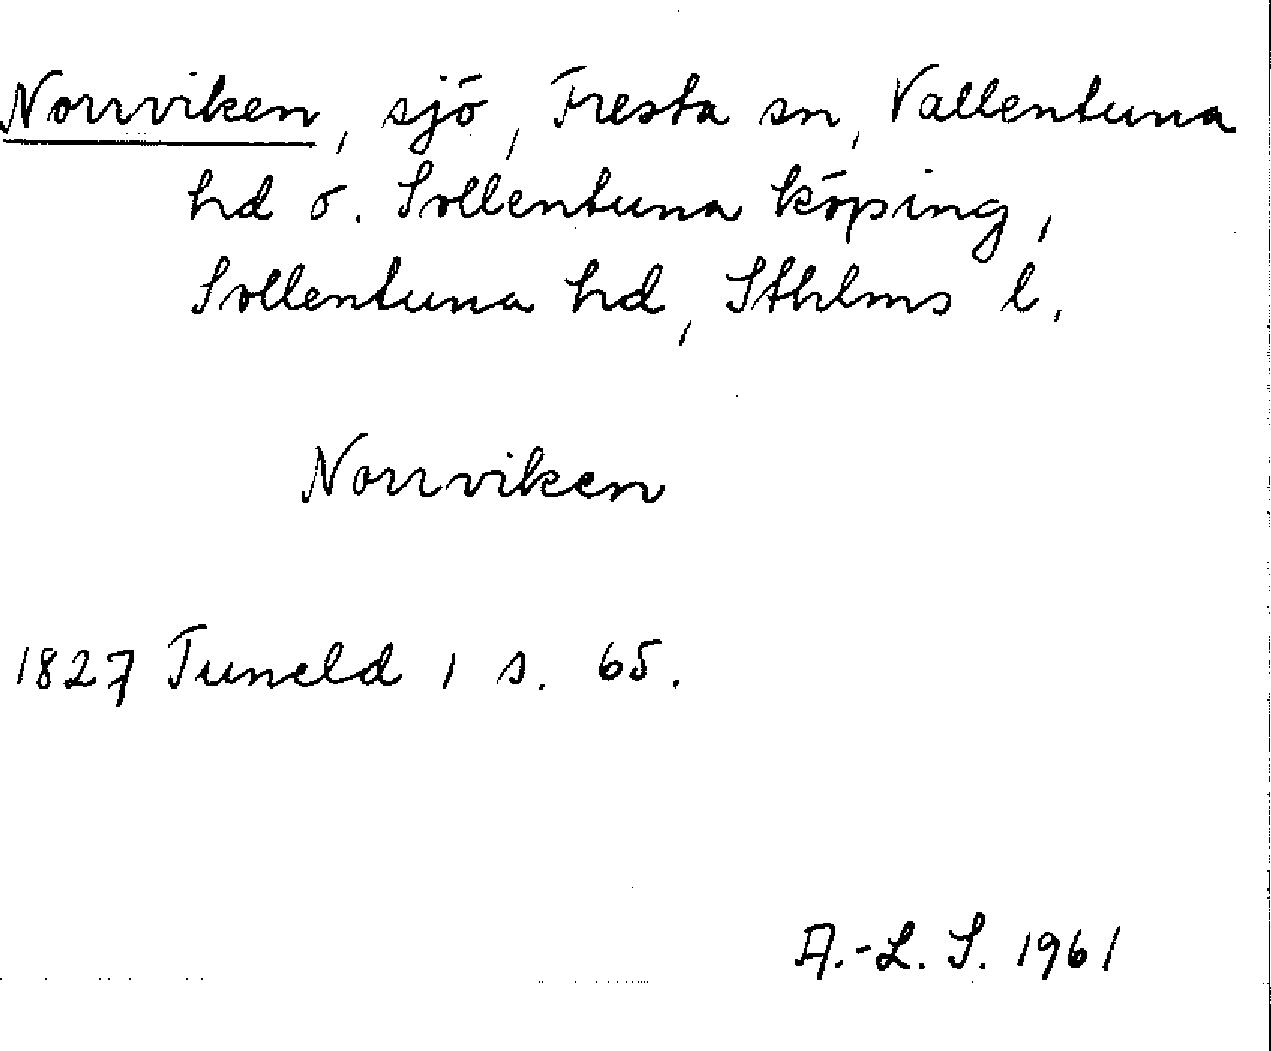 Norrviken, sjö, Fresta sn, Vallentuna
hd o. Sollentuna köping,
Sollentuna hd, Sthlms l.
Norrviken
1827 Tuneld 1 s. 65.
A.-L. S. 1961